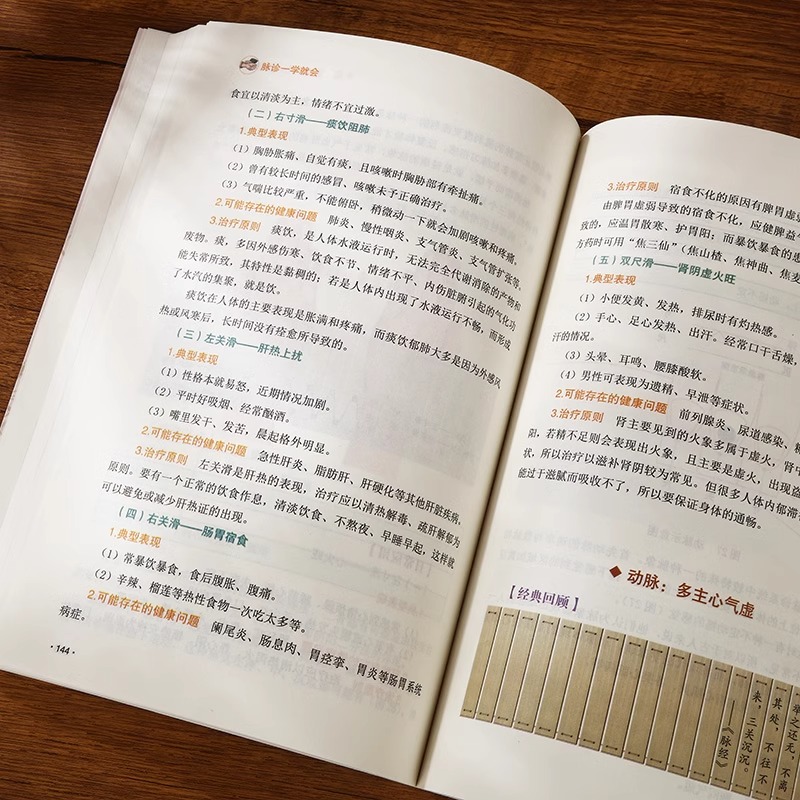 脉诊一学就会
食宜以清淡为主，情绪不宜过激。
（二）右寸滑——痰饮阻肺
1.典型表现
（1）胸胁胀痛、自觉有痰，且咳嗽时胸胁部有牵扯痛。
（2）曾有较长时间的感冒、咳嗽未予正确治疗。
（3）气喘比较严重，不能俯卧，稍微动一下就会加剧咳嗽和疼痛。
2.可能存在的健康问题 肺炎、慢性咽炎、支气管炎、支气管扩张等。
3.治疗原则 痰饮，是人体水液运行时，无法完全代谢消除的产物和
废物。痰，多因外感伤寒、饮食不节、情绪不平、内伤脏腑引起的气化功
能失常所致，其特性是黏稠的；若是人体内出现了水液运行不畅，而形成
了水汽的集聚，就是饮。
痰饮在人体的主要表现是胀满和疼痛，而痰饮郁肺大多是因为外感风
热或风寒后，长时间没有痊愈所导致的。
（三）左关滑——肝热上扰
1.典型表现
（1）性格本就易怒，近期情况加剧。
（2）平时好吸烟、经常酗酒。
（3）嘴里发干、发苦，晨起格外明显。
2.可能存在的健康问题 急性肝炎、脂肪肝、肝硬化等其他肝脏疾病。
3.治疗原则 左关滑是肝热的表现，治疗应以清热解毒、疏肝解郁为
原则。要有一个正常的饮食作息，清淡饮食、不熬夜、早睡早起，这样就
可以避免或减少肝热证的出现。
（四）右关滑——肠胃宿食
1.典型表现
（1）常暴饮暴食，食后腹胀、腹痛。
（2）辛辣、榴莲等热性食物一次吃太多等。
2.可能存在的健康问题 阑尾炎、肠息肉、胃痉挛、胃炎等肠胃系统
病症。
·144·
3.治疗原则 宿食不化的原因有脾胃虚
由脾胃虚弱导致的宿食不化，应健脾益气
致的，应温胃散寒、护胃阳；而暴饮暴食的患
方药时可用“焦三仙”（焦山楂、焦神曲、焦麦
（五）双尺滑——肾阴虚火旺
1.典型表现
（1）小便发黄、发热，排尿时有灼热感。
（2）手心、足心发热、出汗。经常口干舌燥，
汗的情况。
（3）头晕、耳鸣、腰膝酸软。
（4）男性可表现为遗精、早泄等症状。
2.可能存在的健康问题 前列腺炎、尿道感染、糖
3.治疗原则 肾主要见到的火象多属于虚火，肾中
阳，若精不足则会表现出火象，且主要是虚火，出现盗
状，所以治疗以滋补肾阴较为常见。但很多人体内郁滞
能过于滋腻而吸收不了，所以要保证身体的通畅。
◆ 动脉：多主心气虚
【经典回顾】
举之还无，不离
其处，不往不
来，三关沉沉。
——《脉经》